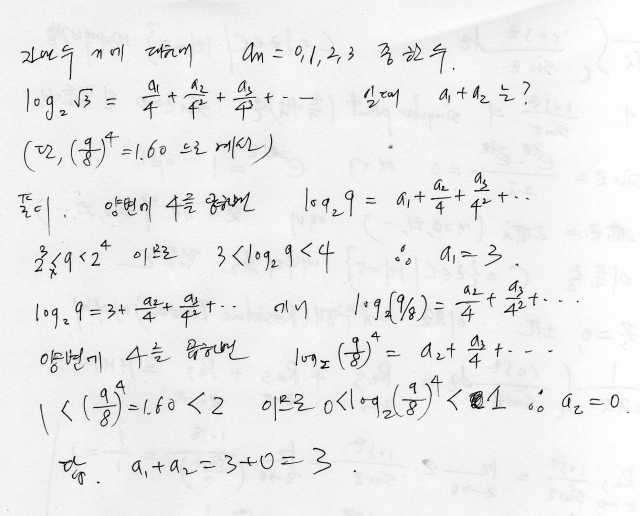 자연수 n에 대하여 an = 0, 1, 2, 3 중 한 수.
log₂√3 = a₁/4 + a₂/4² + a₃/4³ + ··· 일 때 a₁+a₂ 는?
(단, (9/8)⁴ = 1.60 으로 계산)
풀이. 양변에 4를 곱하면 log₂9 = a₁ + a₂/4 + a₃/4² + ··
2³<9<2⁴ 이므로 3<log₂9<4 ∴ a₁=3.
log₂9 = 3 + a₂/4 + a₃/4² + ·· 에서 log₂(9/8) = a₂/4 + a₃/4² + ···
양변에 4를 곱하면 log₂(9/8)⁴ = a₂ + a₃/4 + ···
1 < (9/8)⁴ = 1.60 < 2 이므로 0<log₂(9/8)⁴ < 1 ∴ a₂=0.
답. a₁+a₂ = 3+0 = 3.